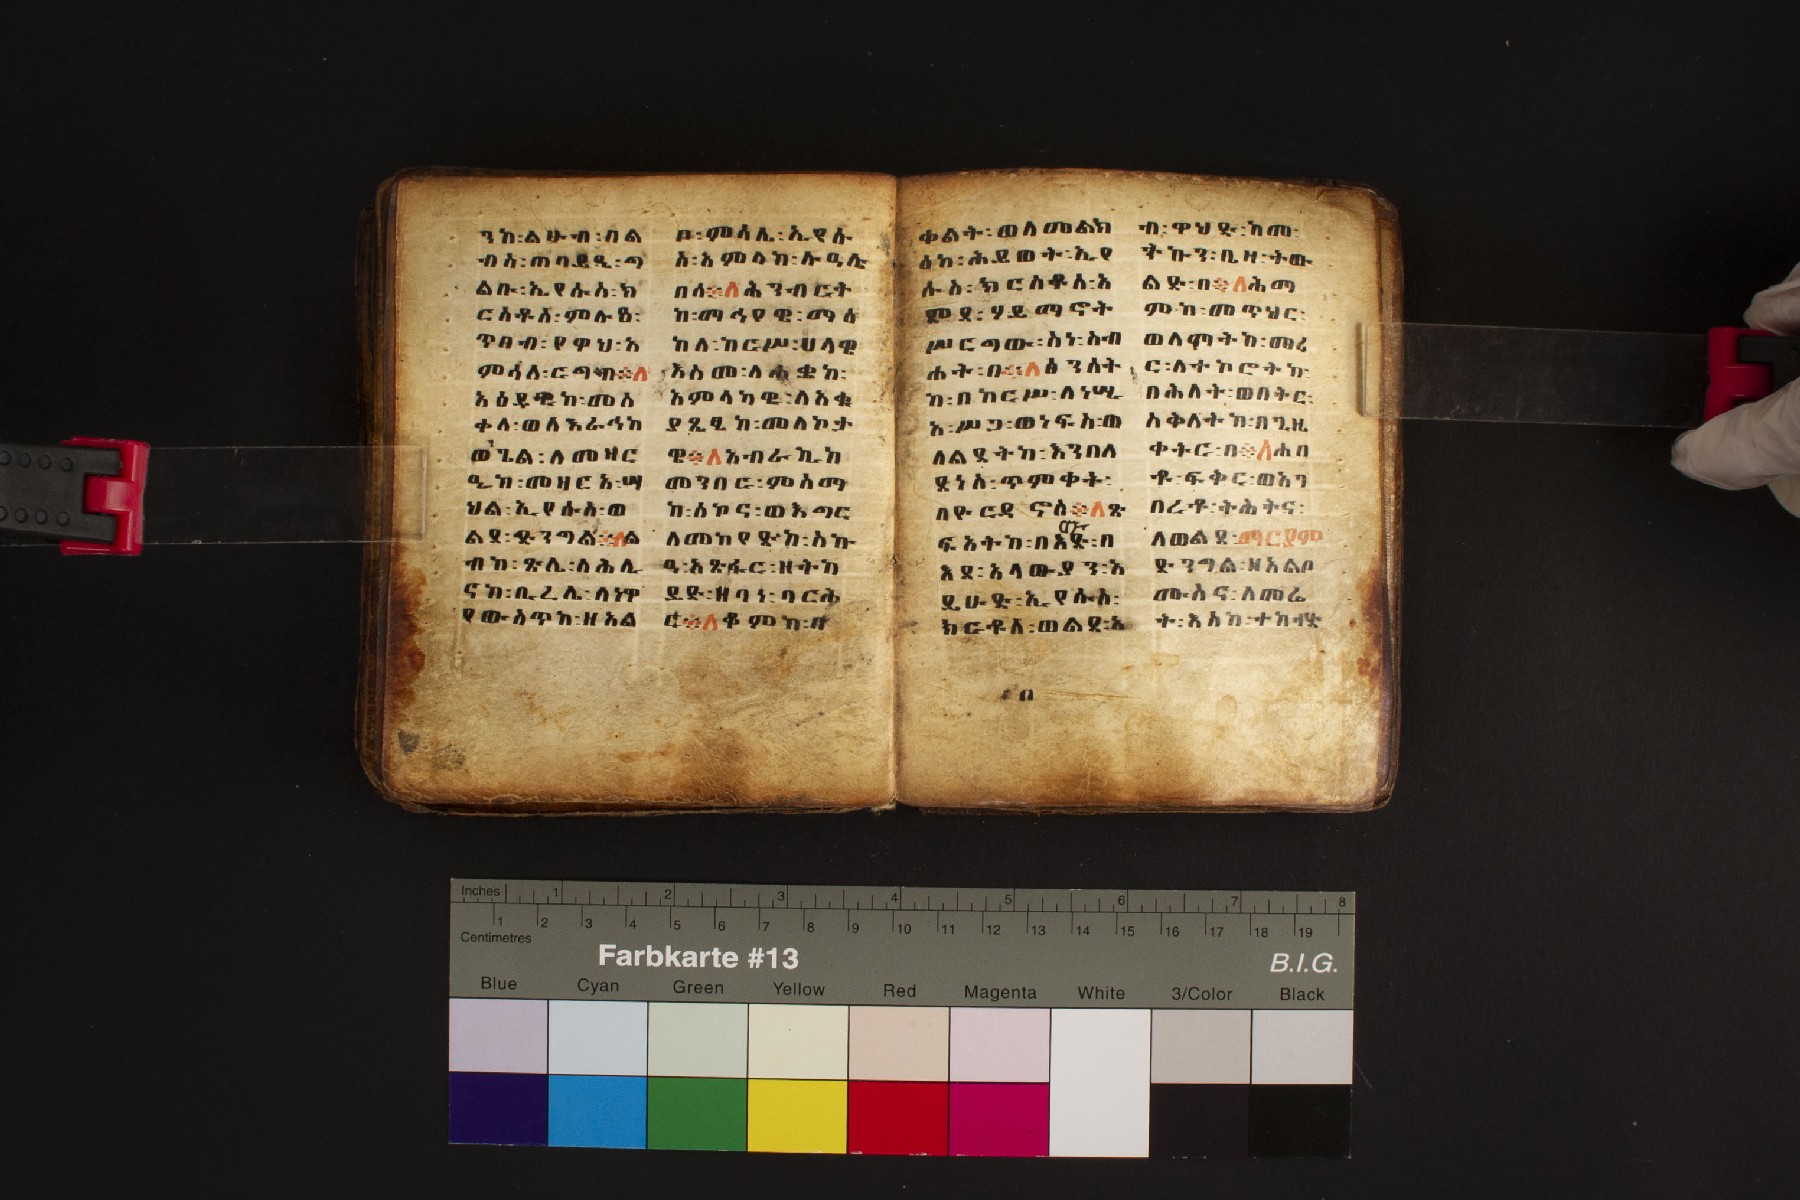 ንከ፡ልሁብ፡በል
ብሰ፡ጠባይዒ፡ጣ
ልቡ፡ኢየሱስ፡ክ
ርስቶስ፡ምሉዕ፡
ጥበብ፡የዋህ፡አ
ምሳለ፡ርግብ፡፡ለ
አዕይቲከ፡መስ
ቀለ፡ወለእራኅከ
ወንጌል፡ለመዛር
ዒከ፡መዘርአ፡ሣ
ህል፡ኢየሱስ፡ወ
ልደ፡ድንግል፡፡ለል
ብከ፡ጽሌ፡ለሕሊ
ናከ፡ቤረሌ፡ለነዋ
የውስጥከ፡ዘአል
ቦ፡ምሳሌ፡ኢየሱ
ስ፡አምላከ፡ሉዓሌ
በሳ፡፡ለሕንብርት
ከ፡ማኅየዊ፡ማዕ
ከለ፡ከርሥ፡ህላዊ
እስመ፡ለሐቌከ፡
አምላካዊ፡ለአቁ
ያጺከ፡መለኮታ
ዊ፡፡ለአብራኪከ
መንበር፡ምስማ
ከ፡ሰኮና፡ወእግር
ለመከየድከ፡ስኩ
ዓ፡አጽፋር፡ዘትከ
ደድ፡ዘባነ፡ባርሕ
ር፡፡ለቆምከ፡ዘ
ቀልት፡ወለመልክ
ዕከ፡ሕይወት፡ኢየ
ሱስ፡ክርስቶስ፡አ
ምደ፡ሃይማኖት
ሥርግው፡ስነ፡ስብ
ሐት፡በ፡፡ለፅንሰት
ከ፡በከርሥ፡ለነሢ
አ፡ሥጋ፡ወነፍስ፡ወ
ለልደትከ፡እንበለ
ደነስ፡ጥምቀት፡
በዮርዳኖስ፡፡ለጽ
ፍአትከ፡በእድ፡በ
እደ፡አላውያን፡አ
ይሁድ፡ኢየሱስ፡
ክርቶስ፡ወልደ፡አ
በ
ብ፡ዋህድ፡ከመ፡
ትኩን፡ቤዛ፡ትው
ልድ፡በ፡፡ለሕማ
ምከ፡መጥህር፡
ወለሞትከ፡መሪ
ር፡ለተኮሮትከ፡
በሕለት፡ወበትር፡
ስቅለትከ፡በጊዜ
ቀትር፡በ፡፡ለሐበ
ቶ፡ፍቅር፡ወእን
በረቶ፡ትሕትና፡
ለወልደ፡ማርያም
ድንግል፡ዘአልቦ
ሙስና፡ለመሬ
ት፡እስከ፡ተከዛ
Inches 1 2 3 4 5 6 7 8
1 2 3 4 5 6 7 8 9 10 11 12 13 14 15 16 17 18 19
Centimetres
Farbkarte #13
B.I.G.
Blue Cyan Green Yellow Red Magenta White 3/Color Black